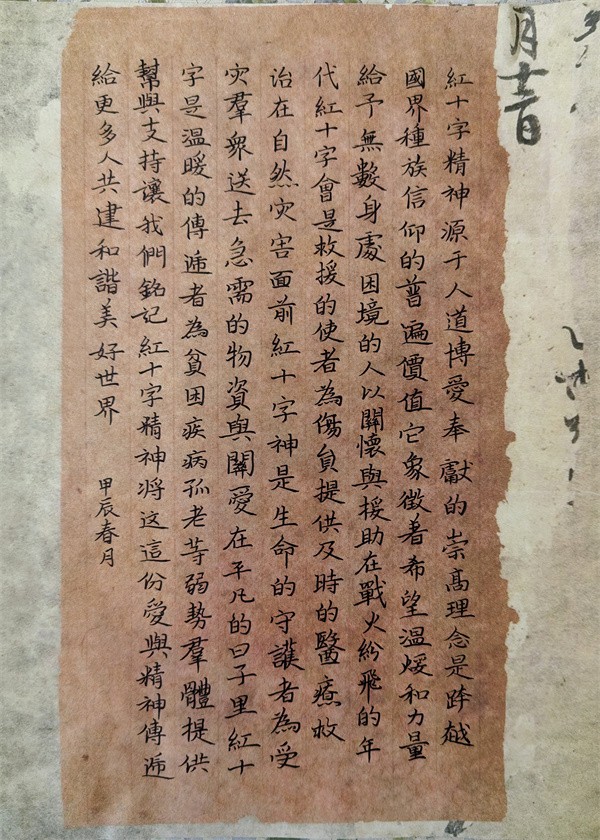 月十二日
紅十字精神源于人道博愛奉獻的崇高理念是跨越
國界種族信仰的普遍價值它象徵着希望温煖和力量
給予無數身處困境的人以關懷與援助在戰火紛飛的年
代紅十字會是救援的使者為傷員提供及時的醫療救
治在自然灾害面前紅十字神是生命的守護者為受
灾羣衆送去急需的物資與關愛在平凡的日子里紅十
字是温暖的傳遞者為貧困疾病孤老等弱勢羣體提供
幫與支持讓我們銘記紅十字精神将这這份愛與精神傳遞
給更多人共建和諧美好世界
甲辰春月